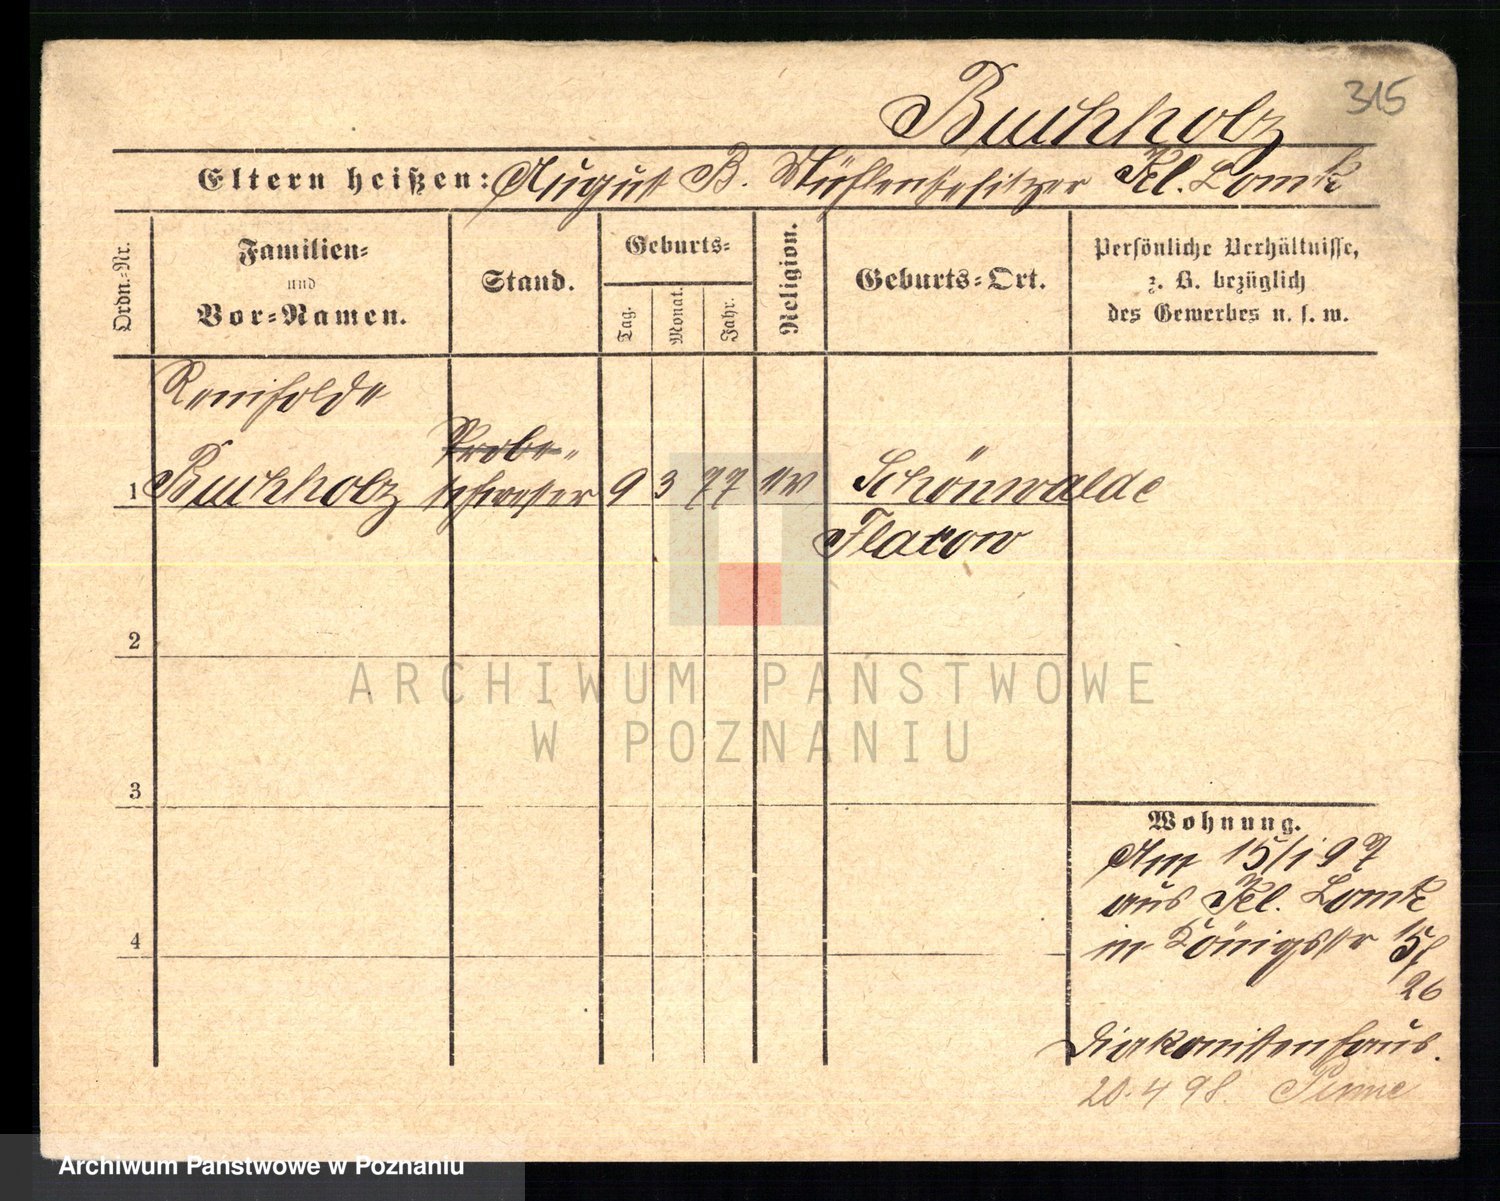 315
Buchholz
Eltern heißen: August B. Mühlenbesitzer Kl. Lomk
Ordn.-Nr.
Familien-
und
Vor-Namen.
Stand.
Geburts-
Tag.
Monat.
Jahr.
Religion.
Geburts-Ort.
Persönliche Verhältnisse,
z. B. bezüglich
des Gewerbes u. s. w.
Probe-
1 Buchholz schwester 9 3 77 ev Schönwalde
Flatow
2
3
4
Wohnung.
Am 15/1 97
aus Kl. Lomk
in Königstr 15/
26
Diakonissenhaus.
20.4 98. Pinne
ARCHIWUM PAŃSTWOWE
W POZNANIU
Archiwum Państwowe w Poznaniu